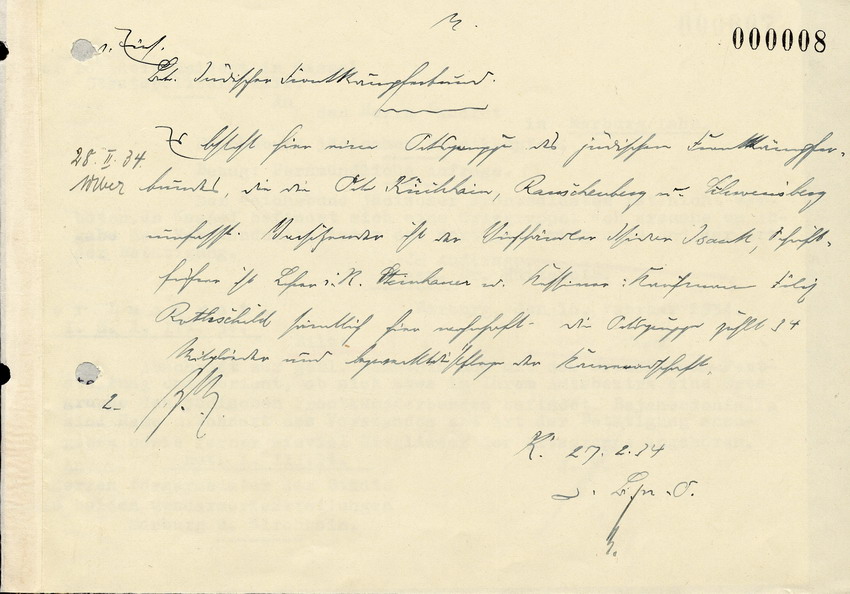 000008
Btr. Jüdischer Frontkämpferbund.
Es besteht hier eine Ortsgruppe des jüdischen Frontkämpfer-
28. II. 34.
bundes, die die Orte Kirchhain, Rauschenberg u. Schweinsberg
umfasst. Vorsitzender ist der Viehhändler Isidor Isaak, Schrift-
führer ist Lehrer i. R. u. Kassierer: Kaufmann Felix
Rothschild sämtlich hier wohnhaft. die Ortsgruppe zählt 34
Mitglieder und bezweckt die Pflege der Kameradschaft.
2.
K. 27.2.34